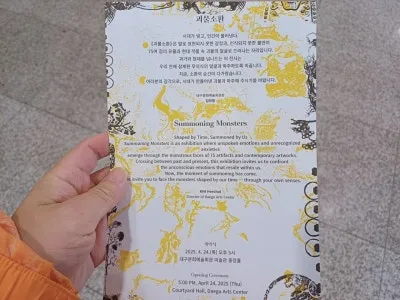 괴물소환
시대가 빚고, 인간이 불러낸다.
《괴물소환》은 말로 표현되지 못한 감정과, 인식되지 못한 불안이
우리 안에 잠재된 무의식의 얼굴과 마주하도록 이끕니다.
지금, 소환의 순간이 다가왔습니다.
대구문화예술회관장
김희철
Summoning Monsters
Shaped by Time, Summoned by Us
Summoning Monsters is an exhibition where unspoken emotions and unrecognized
anxieties
emerge through the monstrous faces of 15 artifacts and contemporary artworks.
Crossing between past and present, this exhibition invites us to confront
the unconscious emotions that reside within us.
Now, the moment of summoning has come.
invite you to face the monsters shaped by our time — through your own senses.
KIM Heechul
Director of Daegu Arts Center
개막식
2025. 4. 24.(목) 오후 5시
대구문화예술회관 미술관 중정홀
Opening Ceremony
5:00 PM, April 24, 2025 (Thu)
Courtyard Hall, Daegu Arts Center